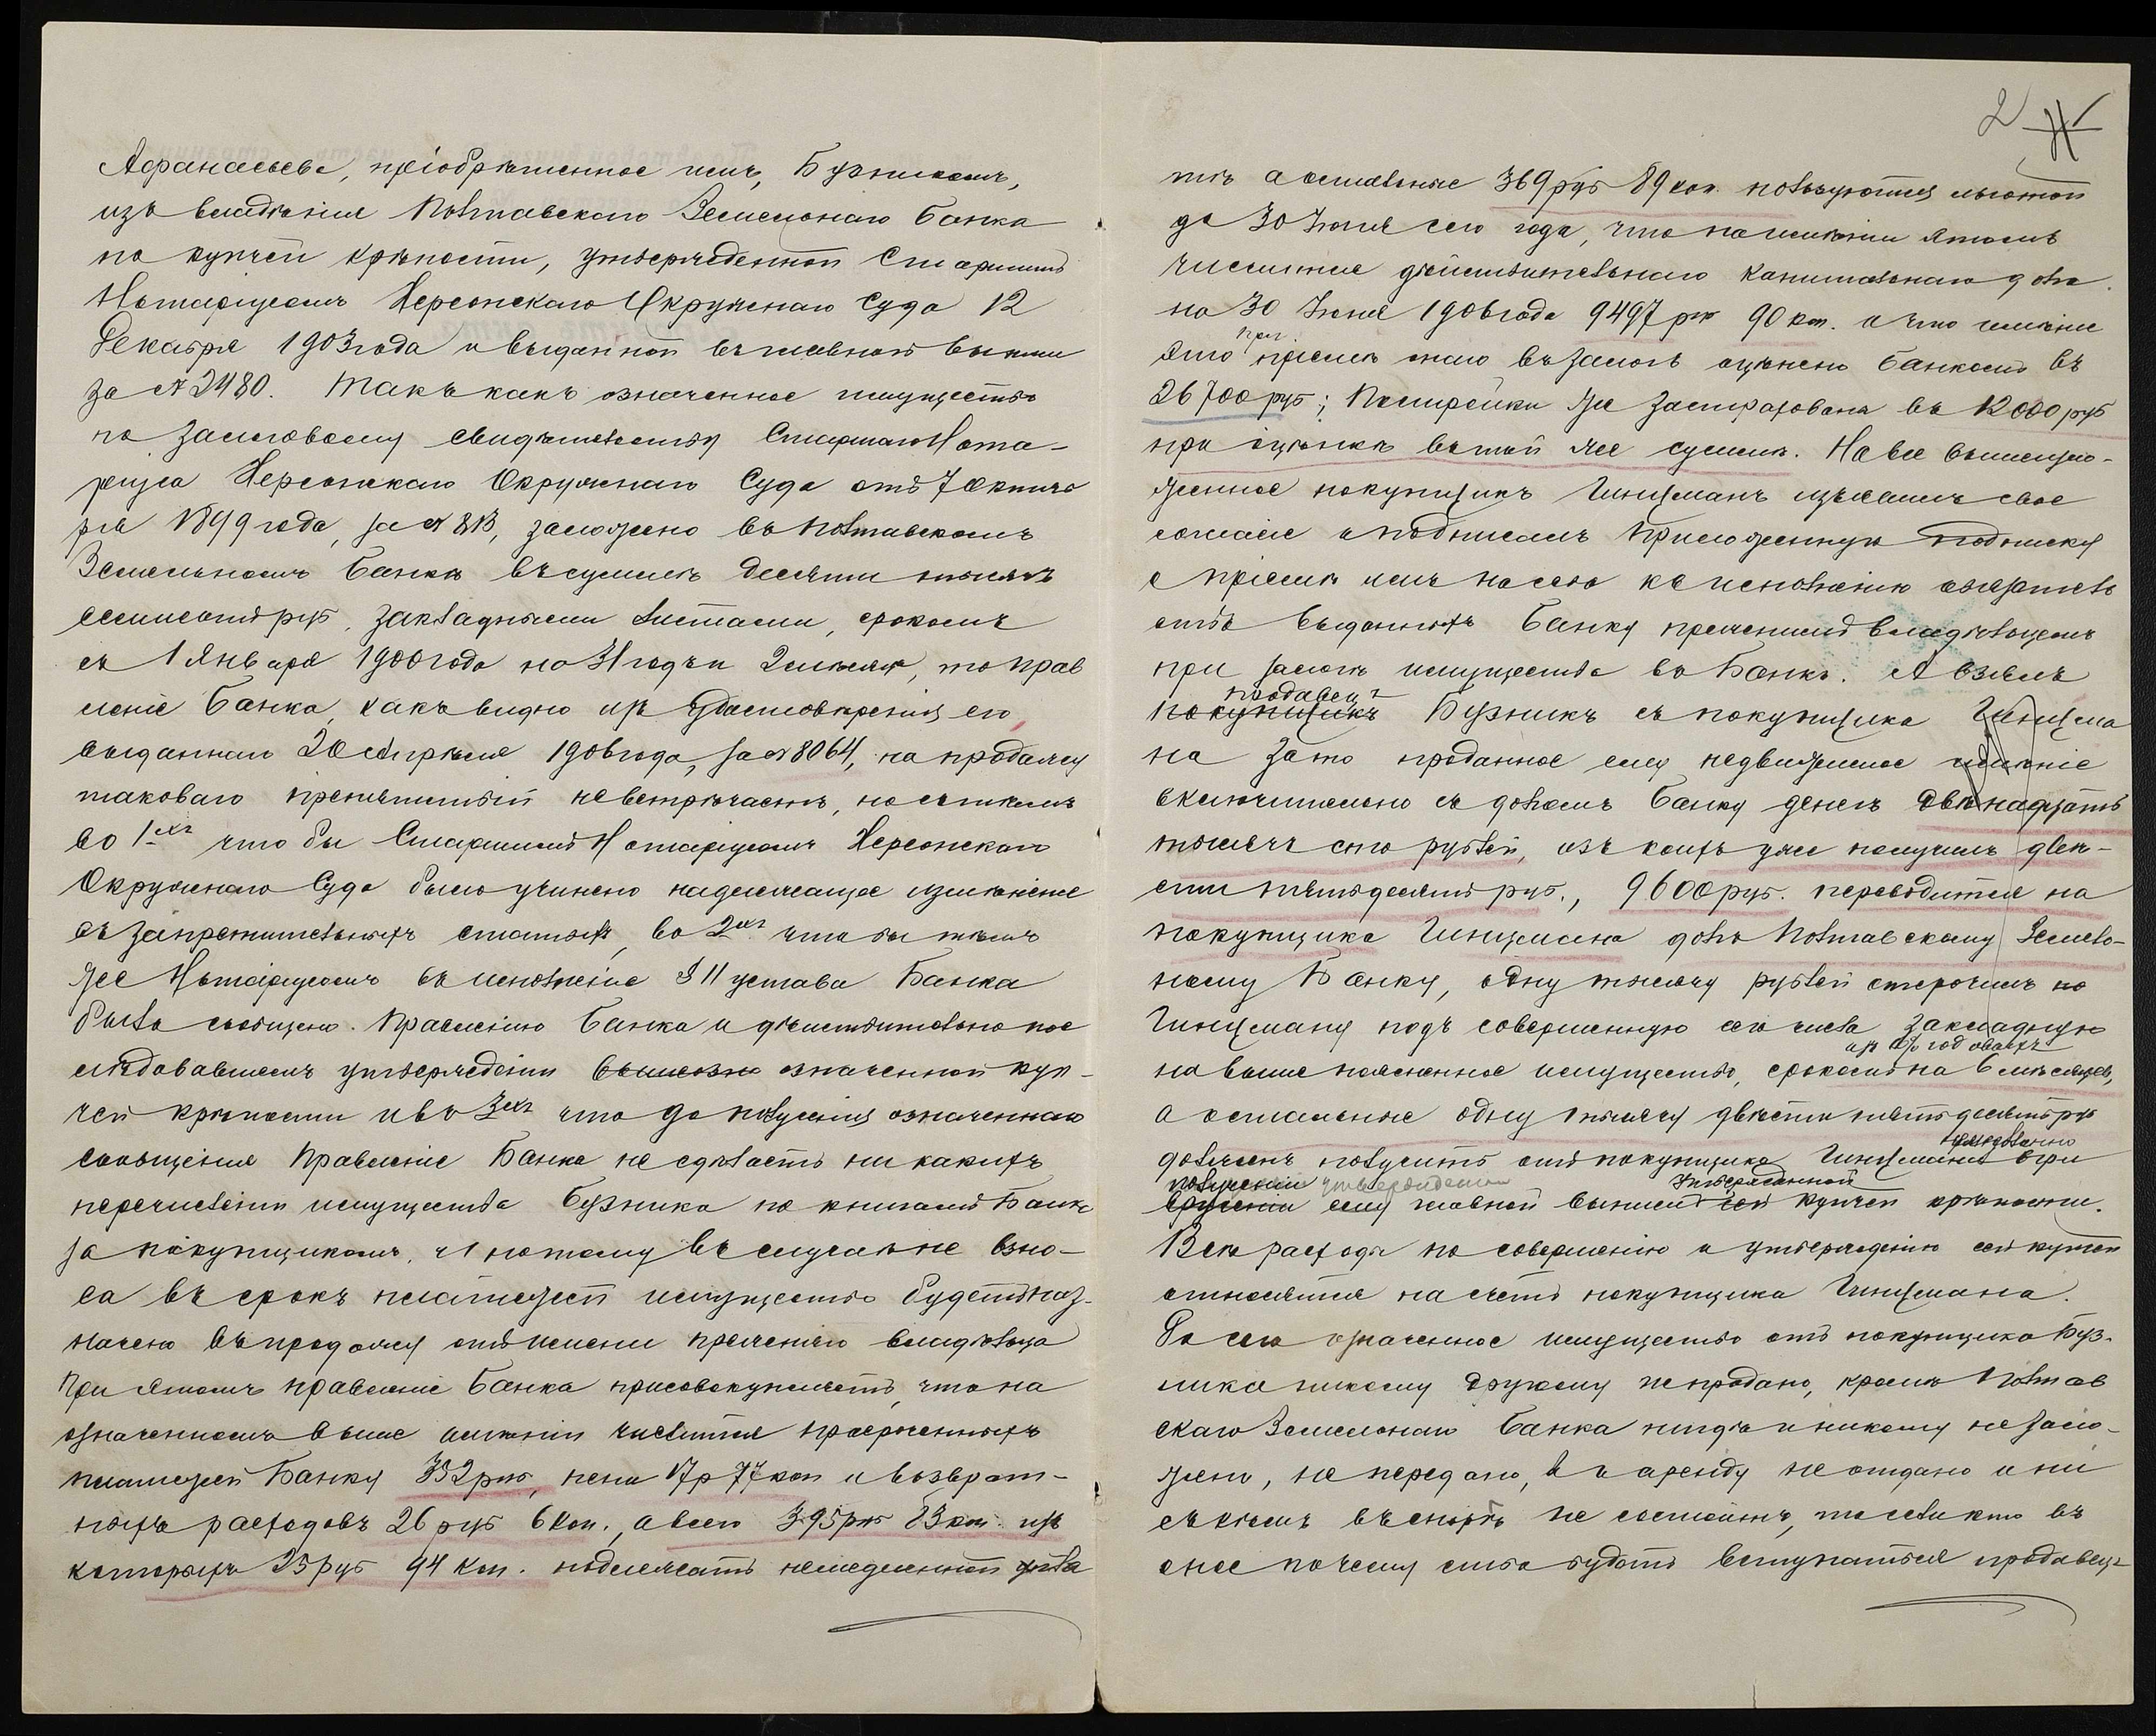 Афанасьева, пріобрѣтенное имъ, Бузникомъ,
изъ владѣнія Полтавскаго Земельнаго Банка
по купчей крѣпости, утвержденной Старшимъ
Нотаріусомъ Херсонскаго Окружнаго Суда 12
Декабря 1903 года и выданной въ главной выписи
за № 2480. Такъ какъ означенное имущество
по залоговому свидѣтельству Старшаго Нота-
ріуса Херсонскаго Окружнаго Суда отъ 7 Октяб
ря 1899 года, за № 813, заложено въ Полтавскомъ
Земельномъ Банкѣ въ суммѣ десяти тысячъ
семисотъ руб. закладными листами, срокомъ
съ 1 Января 1900 года на 31 годъ и 2 мѣсяца, то прав
леніе Банка, какъ видно изъ удостовѣренія его
выданнаго 20 Апрѣля 1906 года, за № 8064, на продажу
таковаго препятствій не встрѣчаетъ, но съ тѣмъ
во 1-хъ что бы Старшимъ Нотаріусомъ Херсонскаго
Окружнаго Суда было учинено надлежащее измѣненіе
въ запретительныхъ статьяхъ, во 2хъ что бы тѣмъ
же Нотаріусомъ въ исполненіе § 11 устава Банка
было сообщено Правленію Банка и дѣйствительно пос
лѣдовавшемъ утвержденіи вышеозн означенной куп-
чей крѣпости и въ 3хъ что до полученія означеннаго
сообщенія Правленіе Банка не сдѣлаетъ ни какихъ
перечисленій имущества Бузника по книгамъ Банка
за покупщикомъ, и потому въ случаѣ не взно-
са въ срокъ платежей имущество будетъ наз-
начено въ продажу отъ имени прежняго владѣльца
При этомъ правленіе Банка присовокупляетъ, что на
означенномъ выше имѣніи числится просроченныхъ
платежей Банку 352 руб, пени 17 р 77 коп и возврат-
ныхъ расходовъ 26 руб 6 коп., а всего 395 руб 83 коп. изъ
которыхъ 25 руб 94 коп. подлежатъ немедленной упла
2
тѣ а остальные 369 руб 89 коп. пользуются льготой
до 30 Іюня сего года, что на имѣніи этомъ
числится дѣйствительнаго капитальнаго долга
на 30 Іюня 1906 года 9497 руб 90 коп. и что имѣніе
это при пріемѣ онаго въ залогъ оцѣнено Банкомъ въ
26700 руб; Постройки же застрахованы въ 12000 руб
при оцѣнкѣ въ той же суммѣ. На все вышеизло-
женное покупщикъ Гинцманъ изъявилъ свое
согласіе и подписалъ приложенную подписку
о пріемѣ имъ на себя къ исполненію обязатель
ствъ выданныхъ Банку прежнимъ владѣльцемъ
при залогѣ имущества въ Банкѣ. А взялъ
продавецъ
покупщикъ Бузникъ съ покупщика Гинцма
на за то проданное ему недвижимое имѣніе
включительно съ долгомъ Банку денегъ двѣнадцать
тысячъ сто рублей, изъ коихъ уже получилъ двѣ-
сти пятьдесятъ руб., 9600 руб. переводится на
покупщика Гинцмана долгъ Полтавскому Земель-
ному Банку, одну тысячу рублей отсрочилъ по
Гинцману подъ совершенную сего числа закладную
изъ % годовыхъ
на выше поясненное имущество, срокомъ на 6 мѣсяцевъ,
а остальные одну тысячу двѣсти пятьдесятъ руб
долженъ получить отъ покупщика Гинцмана при
полученіи утвержденіи Утвержденной
врученіи ему главной выписи сей купчей крѣпости.
Всѣ расходы по совершенію и утвержденію сей купчей
относятся на счетъ покупщика Гинцмана.
До сего означенное имущество отъ покупщика Буз-
ника никому другому не продано, кромѣ Полтав
скаго Земельнаго Банка нигдѣ и никому не зало-
жено, не передано, въ аренду не отдано и ни
съ кѣмъ въ спорѣ не состоитъ, то если кто въ
оное по чему либо будетъ вступаться продавецъ